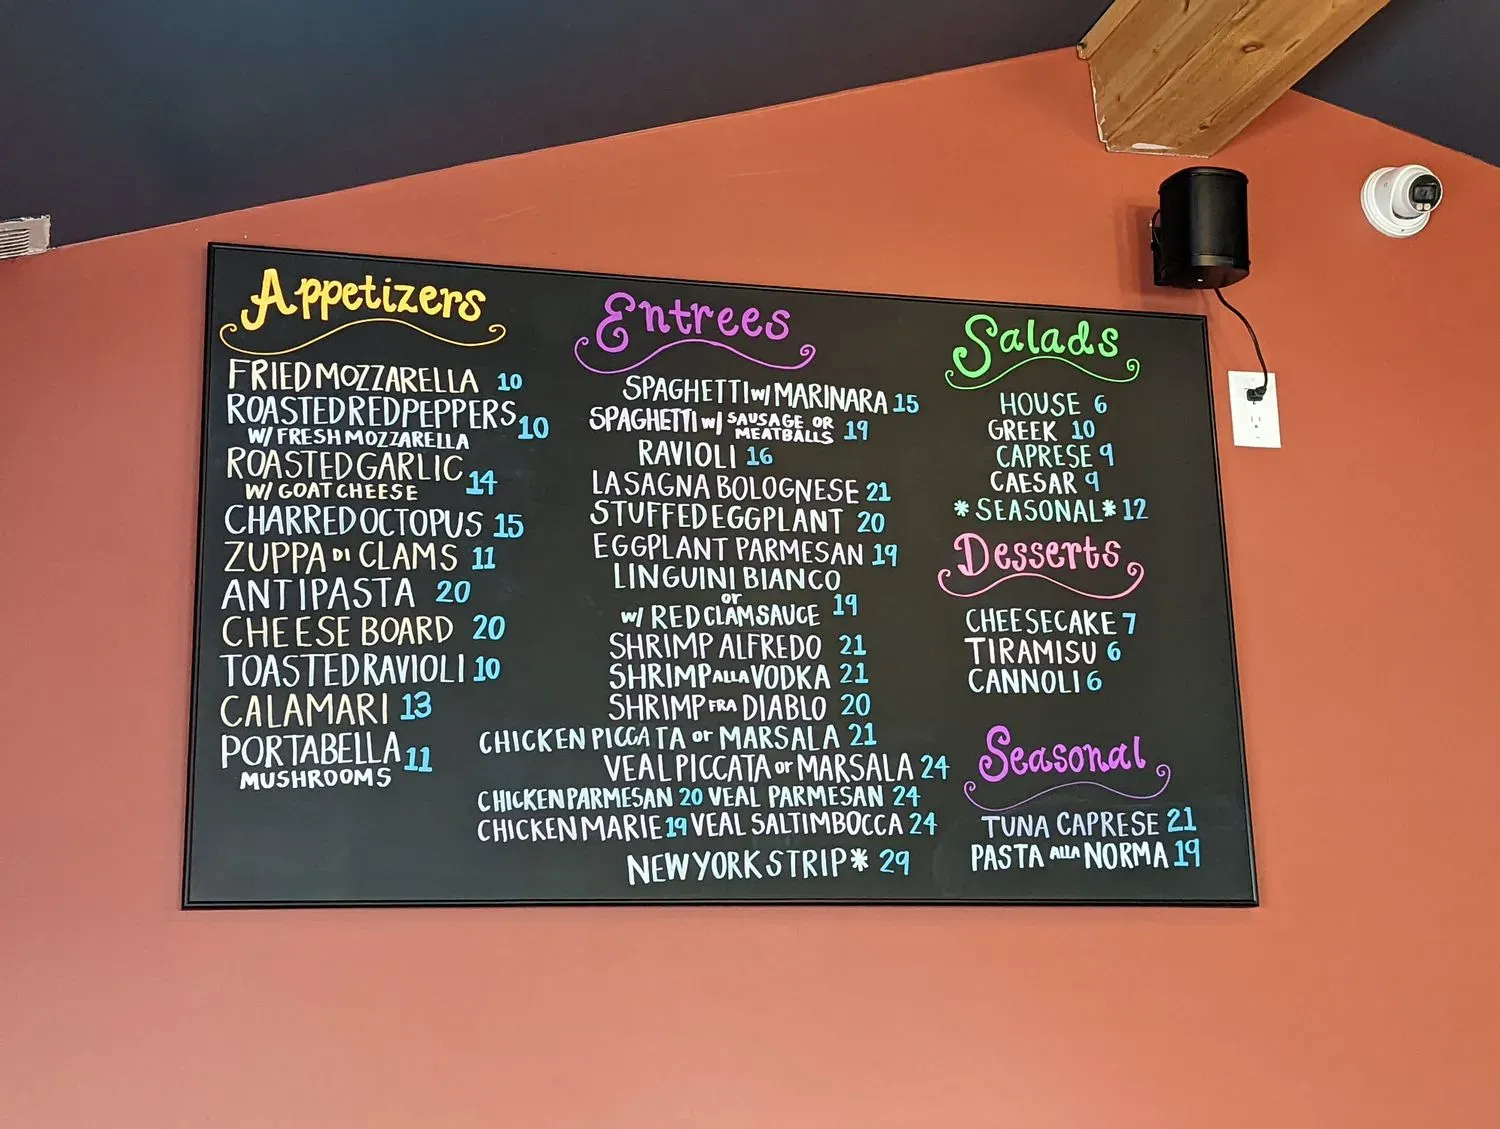 Appetizers
FRIED MOZZARELLA 10
ROASTED RED PEPPERS 10
W/ FRESH MOZZARELLA
ROASTED GARLIC 14
W/ GOAT CHEESE
CHARRED OCTOPUS 15
ZUPPA DI CLAMS 11
ANTIPASTA 20
CHEESE BOARD 20
TOASTED RAVIOLI 10
CALAMARI 13
PORTABELLA 11
MUSHROOMS
Entrees
SPAGHETTI w/ MARINARA 15
SPAGHETTI w/ SAUSAGE OR
MEATBALLS 19
RAVIOLI 16
LASAGNA BOLOGNESE 21
STUFFED EGGPLANT 20
EGGPLANT PARMESAN 19
LINGUINI BIANCO
or
w/ RED CLAM SAUCE 19
SHRIMP ALFREDO 21
SHRIMP ALLA VODKA 21
SHRIMP FRA DIABLO 20
CHICKEN PICCATA or MARSALA 21
VEAL PICCATA or MARSALA 24
CHICKEN PARMESAN 20 VEAL PARMESAN 24
CHICKEN MARIE 19 VEAL SALTIMBOCCA 24
NEW YORK STRIP* 29
Salads
HOUSE 6
GREEK 10
CAPRESE 9
CAESAR 9
*SEASONAL* 12
Desserts
CHEESECAKE 7
TIRAMISU 6
CANNOLI 6
Seasonal
TUNA CAPRESE 21
PASTA ALLA NORMA 19